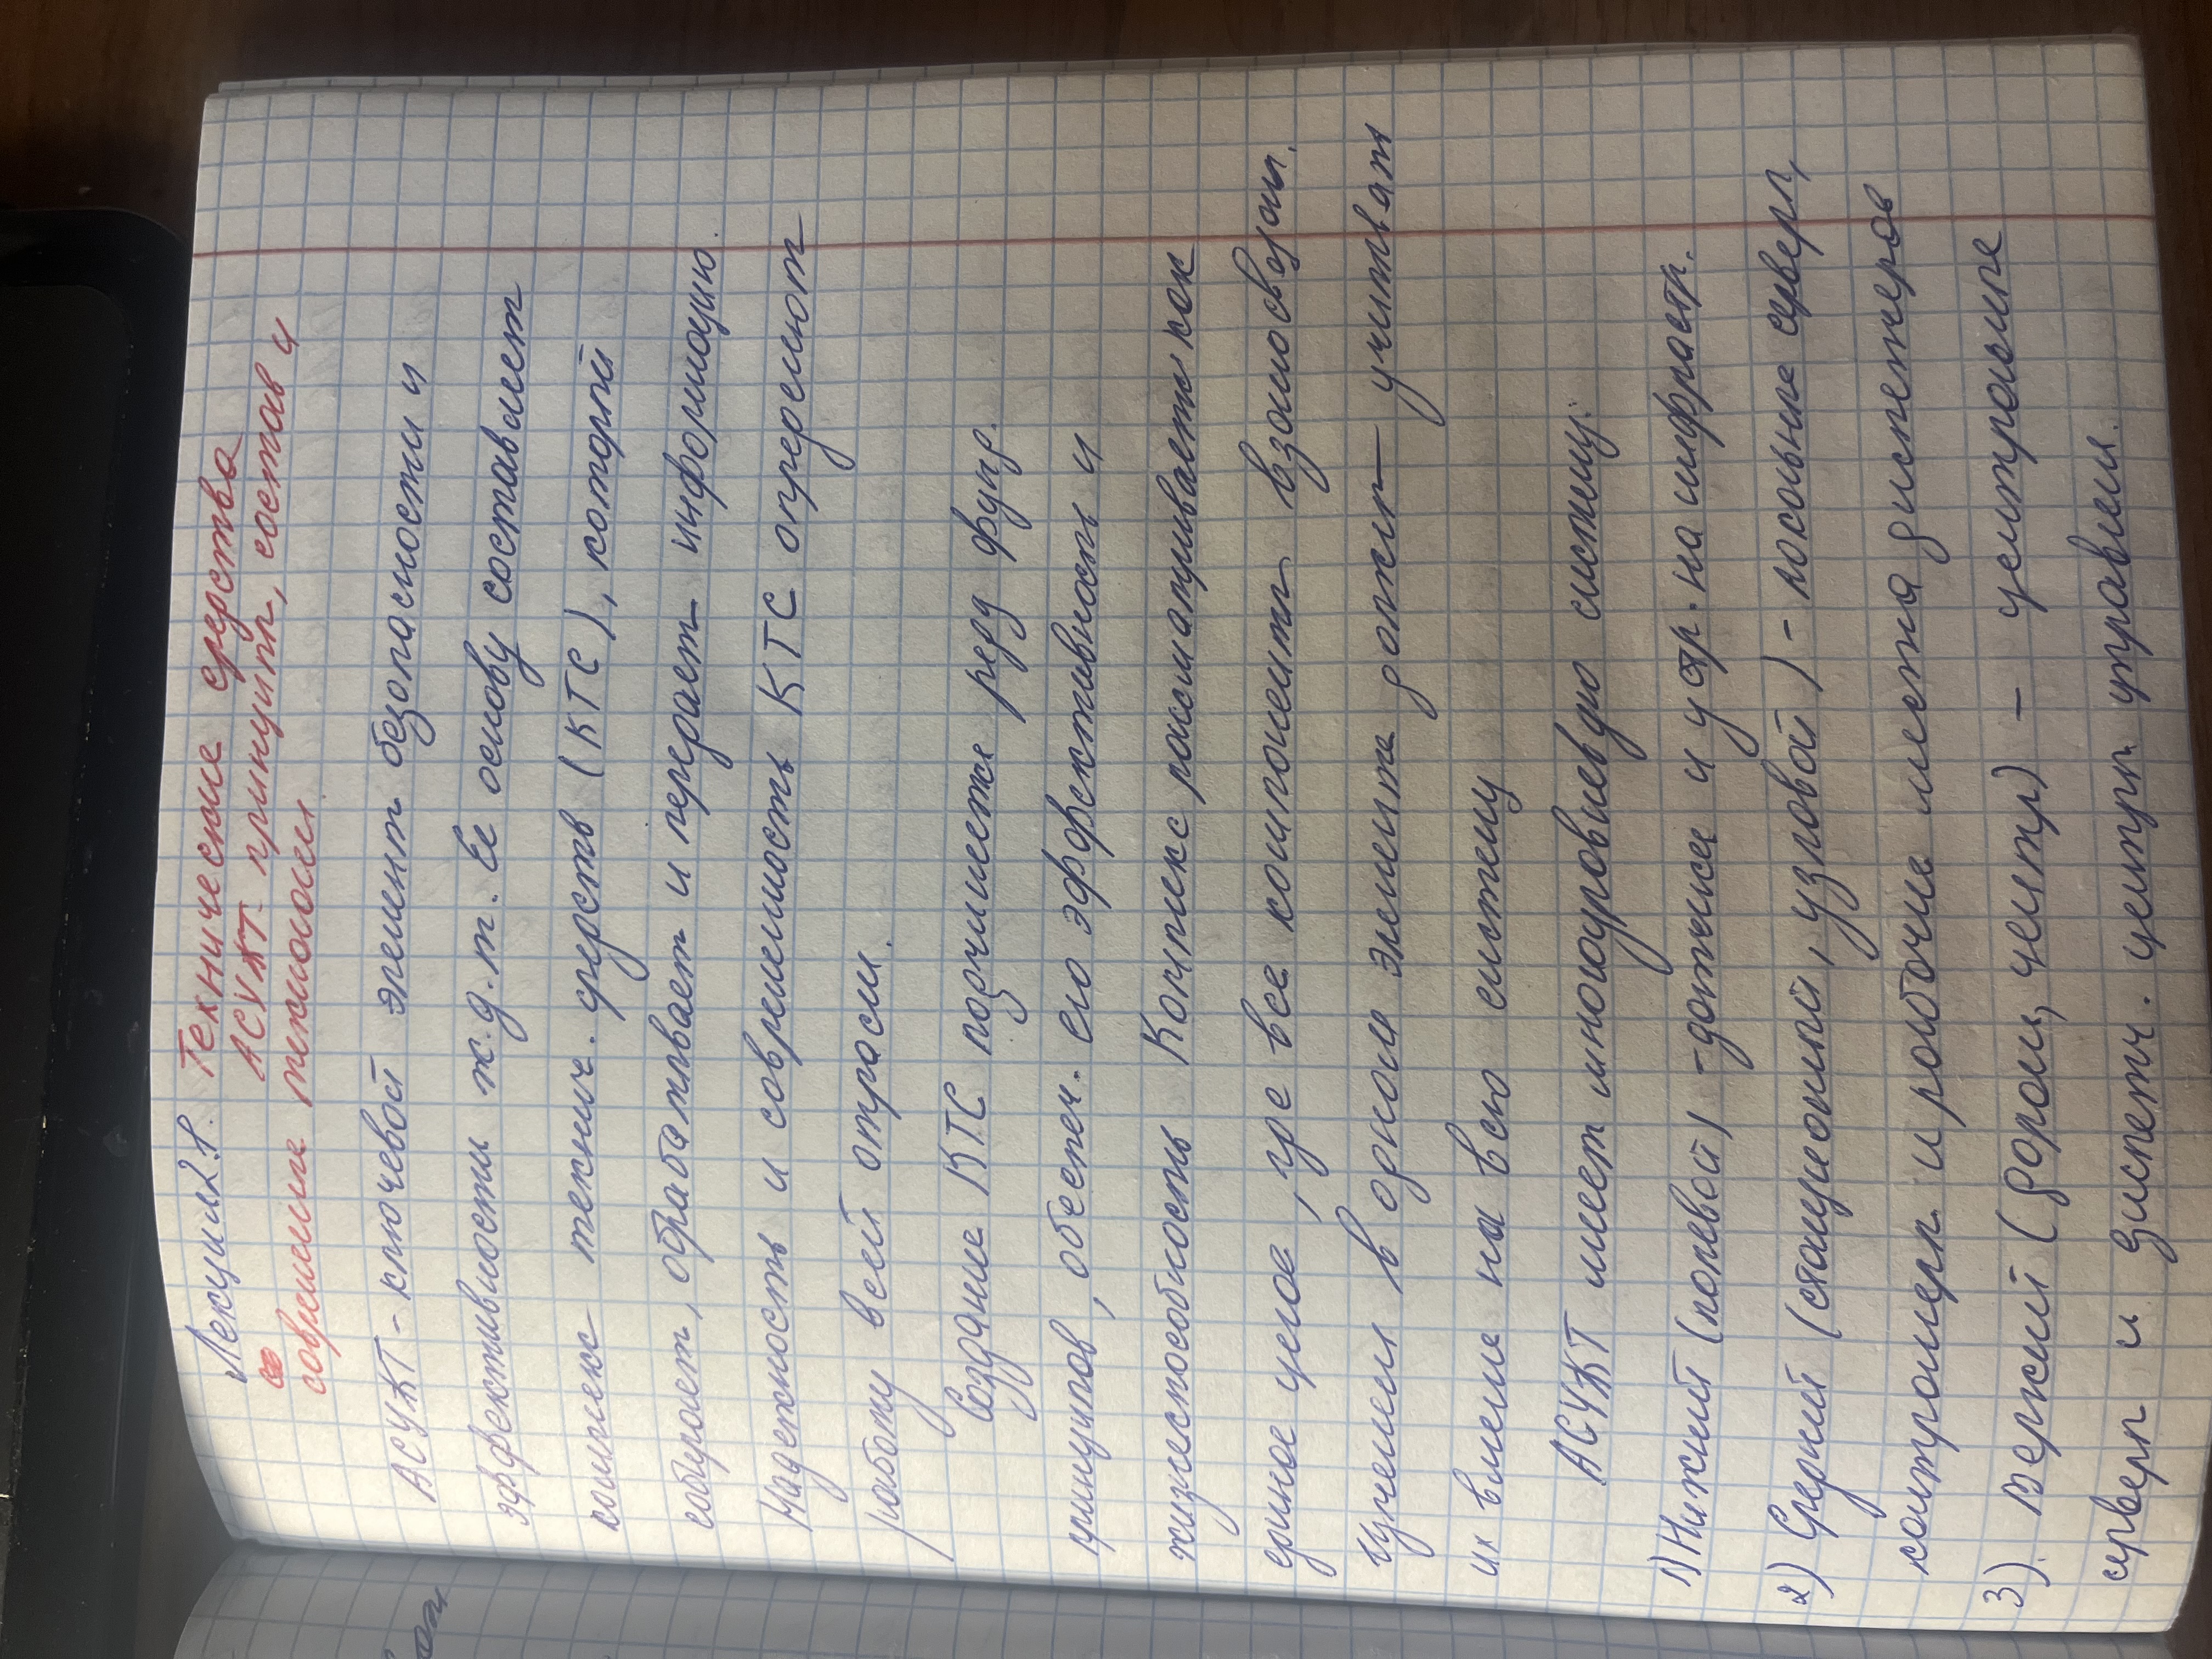 Лекция 2.1. Технические средства
АСУЖТ: принципы, состав и
современные технологии
АСУЖТ - ключевой элемент безопасности и
эффективности ж.д.т. Ее основу составляет
комплекс технич. средств (КТС), который
собирает, обрабатывает и передает информацию.
Надежность и современность КТС определяют
работу всей отрасли.
Создание КТС подчиняется ряду фунд.
принципов, обеспеч. его эффективность и
жизнеспособность Комплекс рассматривается как
единое целое, где все компоненты взаимосвязаны.
Изменения в одном элементе должны учитывать
их влияние на всю систему
АСУЖТ имеет многоуровневую систему:
1) Нижний (полевой) - датчики и устр. на инфрастр.
2) Средний (станционный, узловой) - локальные серверы,
контроллеры и рабочие места диспетчеров
3). Верхний (дорож, центр) - центральные
серверы и диспетч. центры управлен.